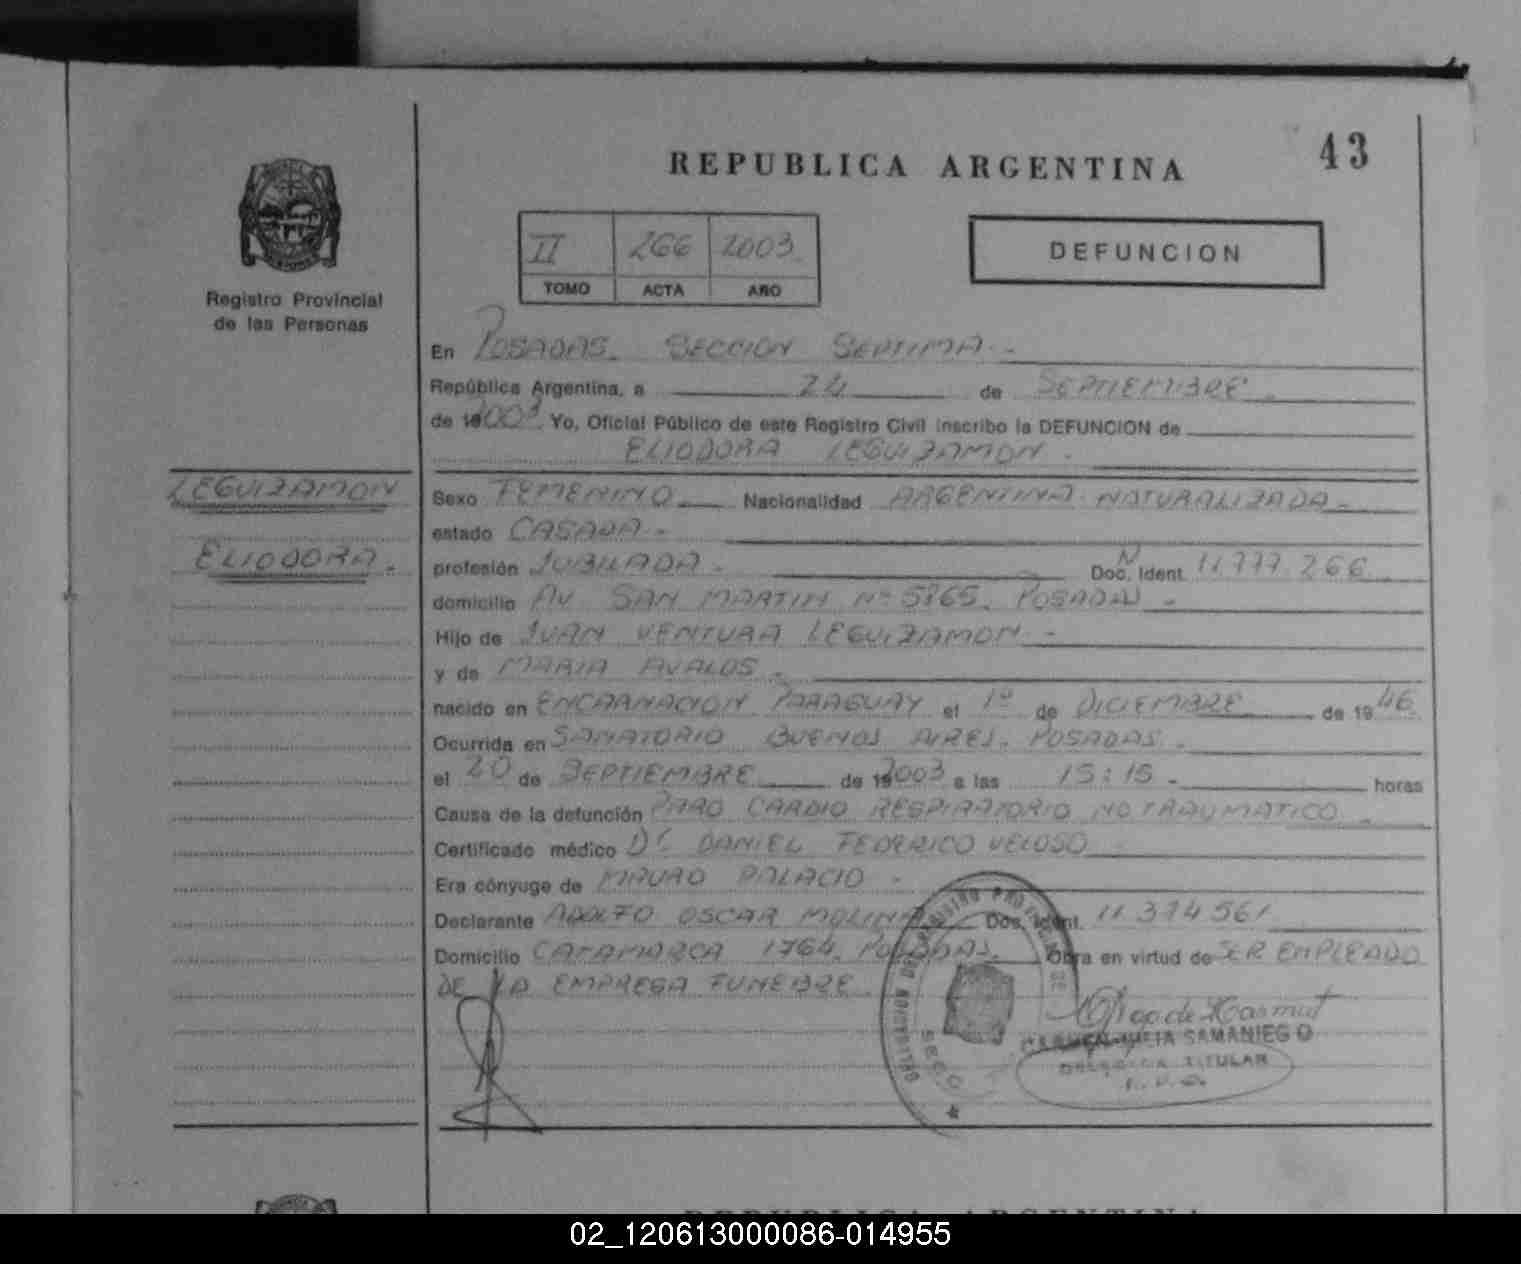 43
REPUBLICA ARGENTINA
II 266 2003
TOMO ACTA AÑO
DEFUNCION
Registro Provincial
de las Personas
En POSADAS. SECCION SEPTIMA.-
República Argentina, a 24 de SEPTIEMBRE.
de 2003 Yo, Oficial Público de este Registro Civil inscribo la DEFUNCION de
ELIODORA LEGUIZAMON.
LEGUIZAMON
ELIODORA.
Sexo FEMENINO Nacionalidad ARGENTINA NATURALIZADA-
estado CASADA-
profesión JUBILADA- Doc. Ident. 11.777.266
domicilio AV. SAN MARTIN Nº 5865. POSADAS-
Hijo de JUAN VENTURA LEGUIZAMON-
y de MARIA AVALOS-
nacido en ENCARNACION PARAGUAY el 1º de DICIEMBRE de 1946
Ocurrida en SANATORIO BUENOS AIRES. POSADAS.
el 20 de SEPTIEMBRE de 2003 a las 15:15- horas
Causa de la defunción PARO CARDIO RESPIRATORIO NO TRAUMATICO
Certificado médico Dr. DANIEL FEDERICO VELOSO
Era cónyuge de MAURO PALACIO-
Declarante ADOLFO OSCAR MOLINA Doc. Ident. 11.374561
Domicilio CATAMARCA 1764. POSADAS. Obra en virtud de SER EMPLEADO
DE LA EMPRESA FUNEBRE.
CARMEN JULIA SAMANIEGO
DELEGADA TITULAR
REPUBLICA ARGENTINA
02_120613000086-014955